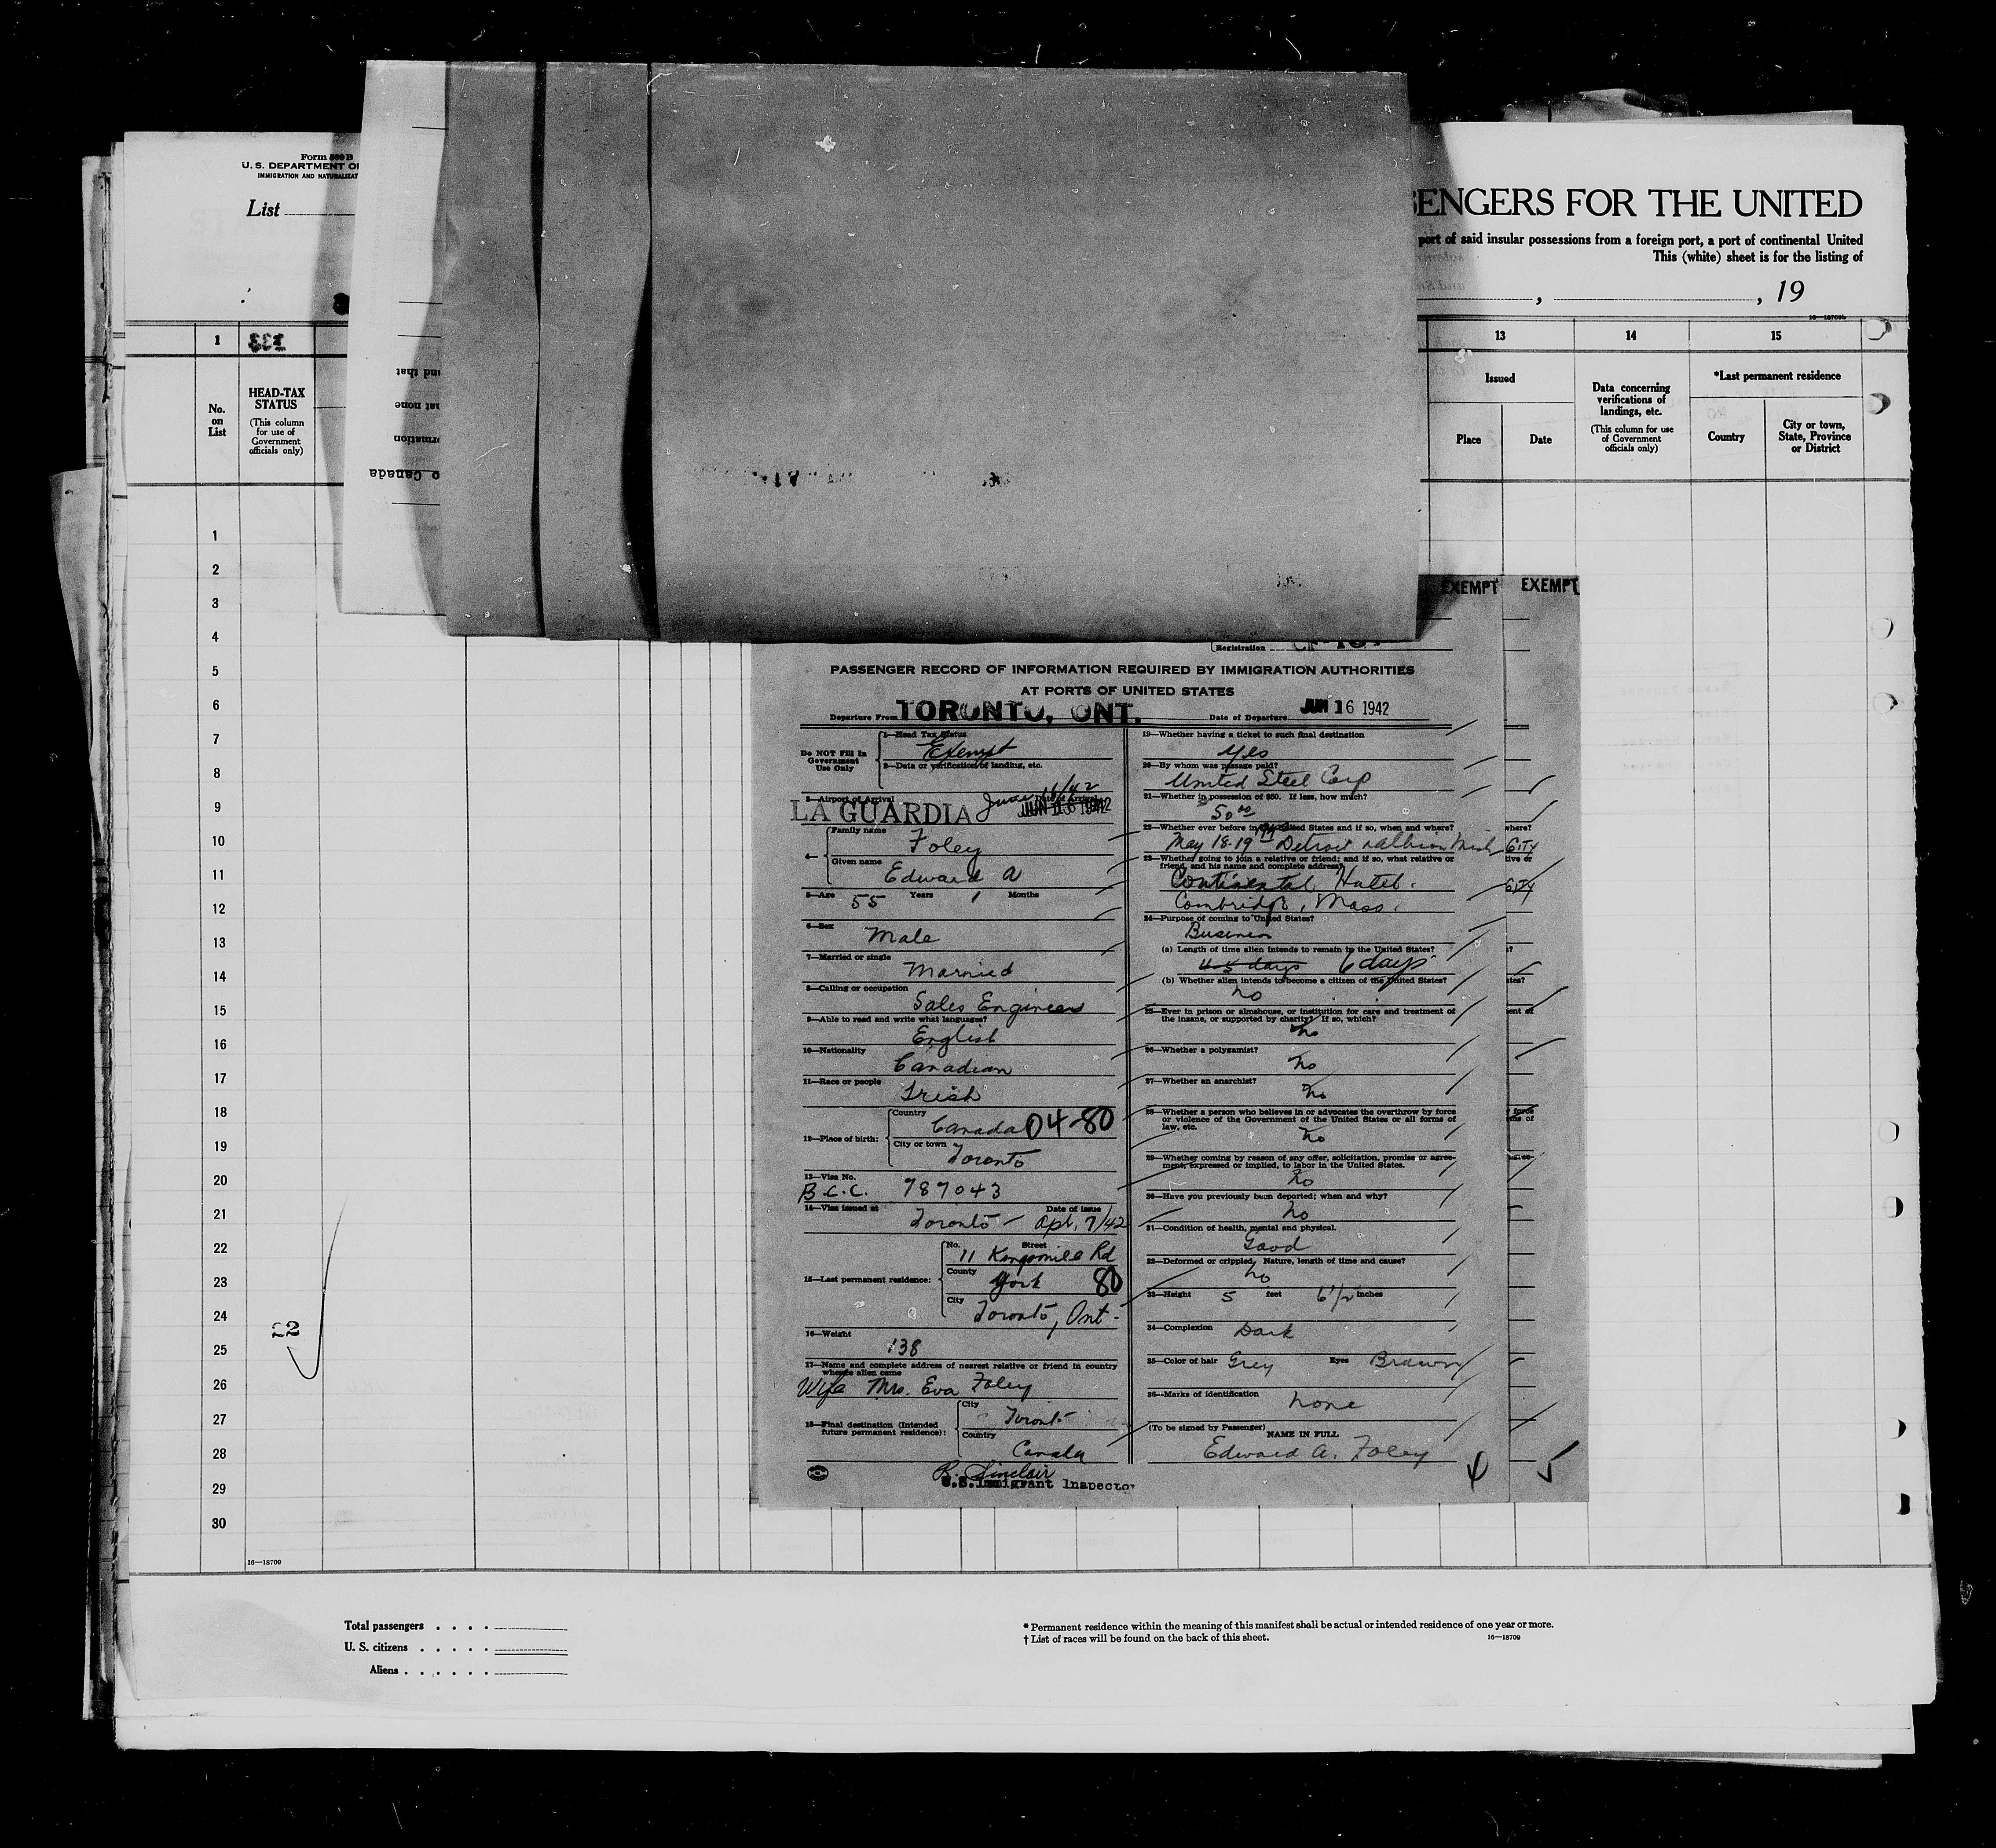 Form 500 B
U. S. DEPARTMENT OF
IMMIGRATION AND NATURALIZAT
List
SENGERS FOR THE UNITED
port of said insular possessions from a foreign port, a port of continental United
This (white) sheet is for the listing of
, , 19
16—18709b
1 13 14 15
No. on List
HEAD-TAX STATUS
(This column for use of Government officials only)
Issued
Place Date
Data concerning verifications of landings, etc.
(This column for use of Government officials only)
*Last permanent residence
Country
City or town, State, Province or District
und that
at none
ormation
o Canada
EXEMPT EXEMPT
1
2
3
4
5
6
7
8
9
10
11
12
13
14
15
16
17
18
19
20
21
22
23
24
25
26
27
28
29
30
22
16—18709
Registration
PASSENGER RECORD OF INFORMATION REQUIRED BY IMMIGRATION AUTHORITIES
AT PORTS OF UNITED STATES
Departure From TORONTO, ONT. Date of Departure JUN 16 1942
Do NOT Fill In Government Use Only
1—Head Tax Status
Exempt
2—Data or verification of landing, etc.
3—Airport of Arrival
LA GUARDIA June 16/42 JUN 16 1942
4—
Family name
Foley
Given name
Edward A
5—Age 55 Years 1 Months
6—Sex
Male
7—Married or single
Married
8—Calling or occupation
Sales Engineer
9—Able to read and write what languages?
English
10—Nationality
Canadian
11—Race or people
Irish
12—Place of birth:
Country
Canada 04-80
City or town
Toronto
13—Visa No.
B.C.C. 787043
14—Visa issued at Date of issue
Toronto — Apt. 7/42
15—Last permanent residence:
No. Street
11 Kingsmill Rd
County
York 80
City
Toronto, Ont.
16—Weight
138
17—Name and complete address of nearest relative or friend in country whence alien came
Wife Mrs. Eva Foley
18—Final destination (Intended future permanent residence):
City
Toronto
Country
Canada
R. Sinclair
U.S. Immigrant Inspector
19—Whether having a ticket to such final destination
Yes
20—By whom was passage paid?
United Steel Corp
21—Whether in possession of $50. If less, how much?
50 00
22—Whether ever before in United States and if so, when and where?
May 18-19 Detroit Albion Mich
23—Whether going to join a relative or friend; and if so, what relative or friend, and his name and complete address?
Continental Hotel.
Cambridge, Mass.
24—Purpose of coming to United States?
Business
(a) Length of time alien intends to remain in the United States?
4-5 days 6 days
(b) Whether alien intends to become a citizen of the United States?
no
25—Ever in prison or almshouse, or institution for care and treatment of the insane, or supported by charity? If so, which?
no
26—Whether a polygamist?
no
27—Whether an anarchist?
no
28—Whether a person who believes in or advocates the overthrow by force or violence of the Government of the United States or all forms of law, etc.
no
29—Whether coming by reason of any offer, solicitation, promise or agreement, expressed or implied, to labor in the United States.
no
30—Have you previously been deported; when and why?
no
31—Condition of health, mental and physical.
Good
32—Deformed or crippled, Nature, length of time and cause?
no
33—Height 5 feet 6 1/2 inches
34—Complexion Dark
35—Color of hair Grey Eyes Brown
36—Marks of identification
none
(To be signed by Passenger) NAME IN FULL
Edward A. Foley
where?
CITY
tive or
CITY
ates?
ent of
force
ms of
Total passengers . . . .
U. S. citizens . . . . .
Aliens . . . . . .
* Permanent residence within the meaning of this manifest shall be actual or intended residence of one year or more.
† List of races will be found on the back of this sheet.
16—18709